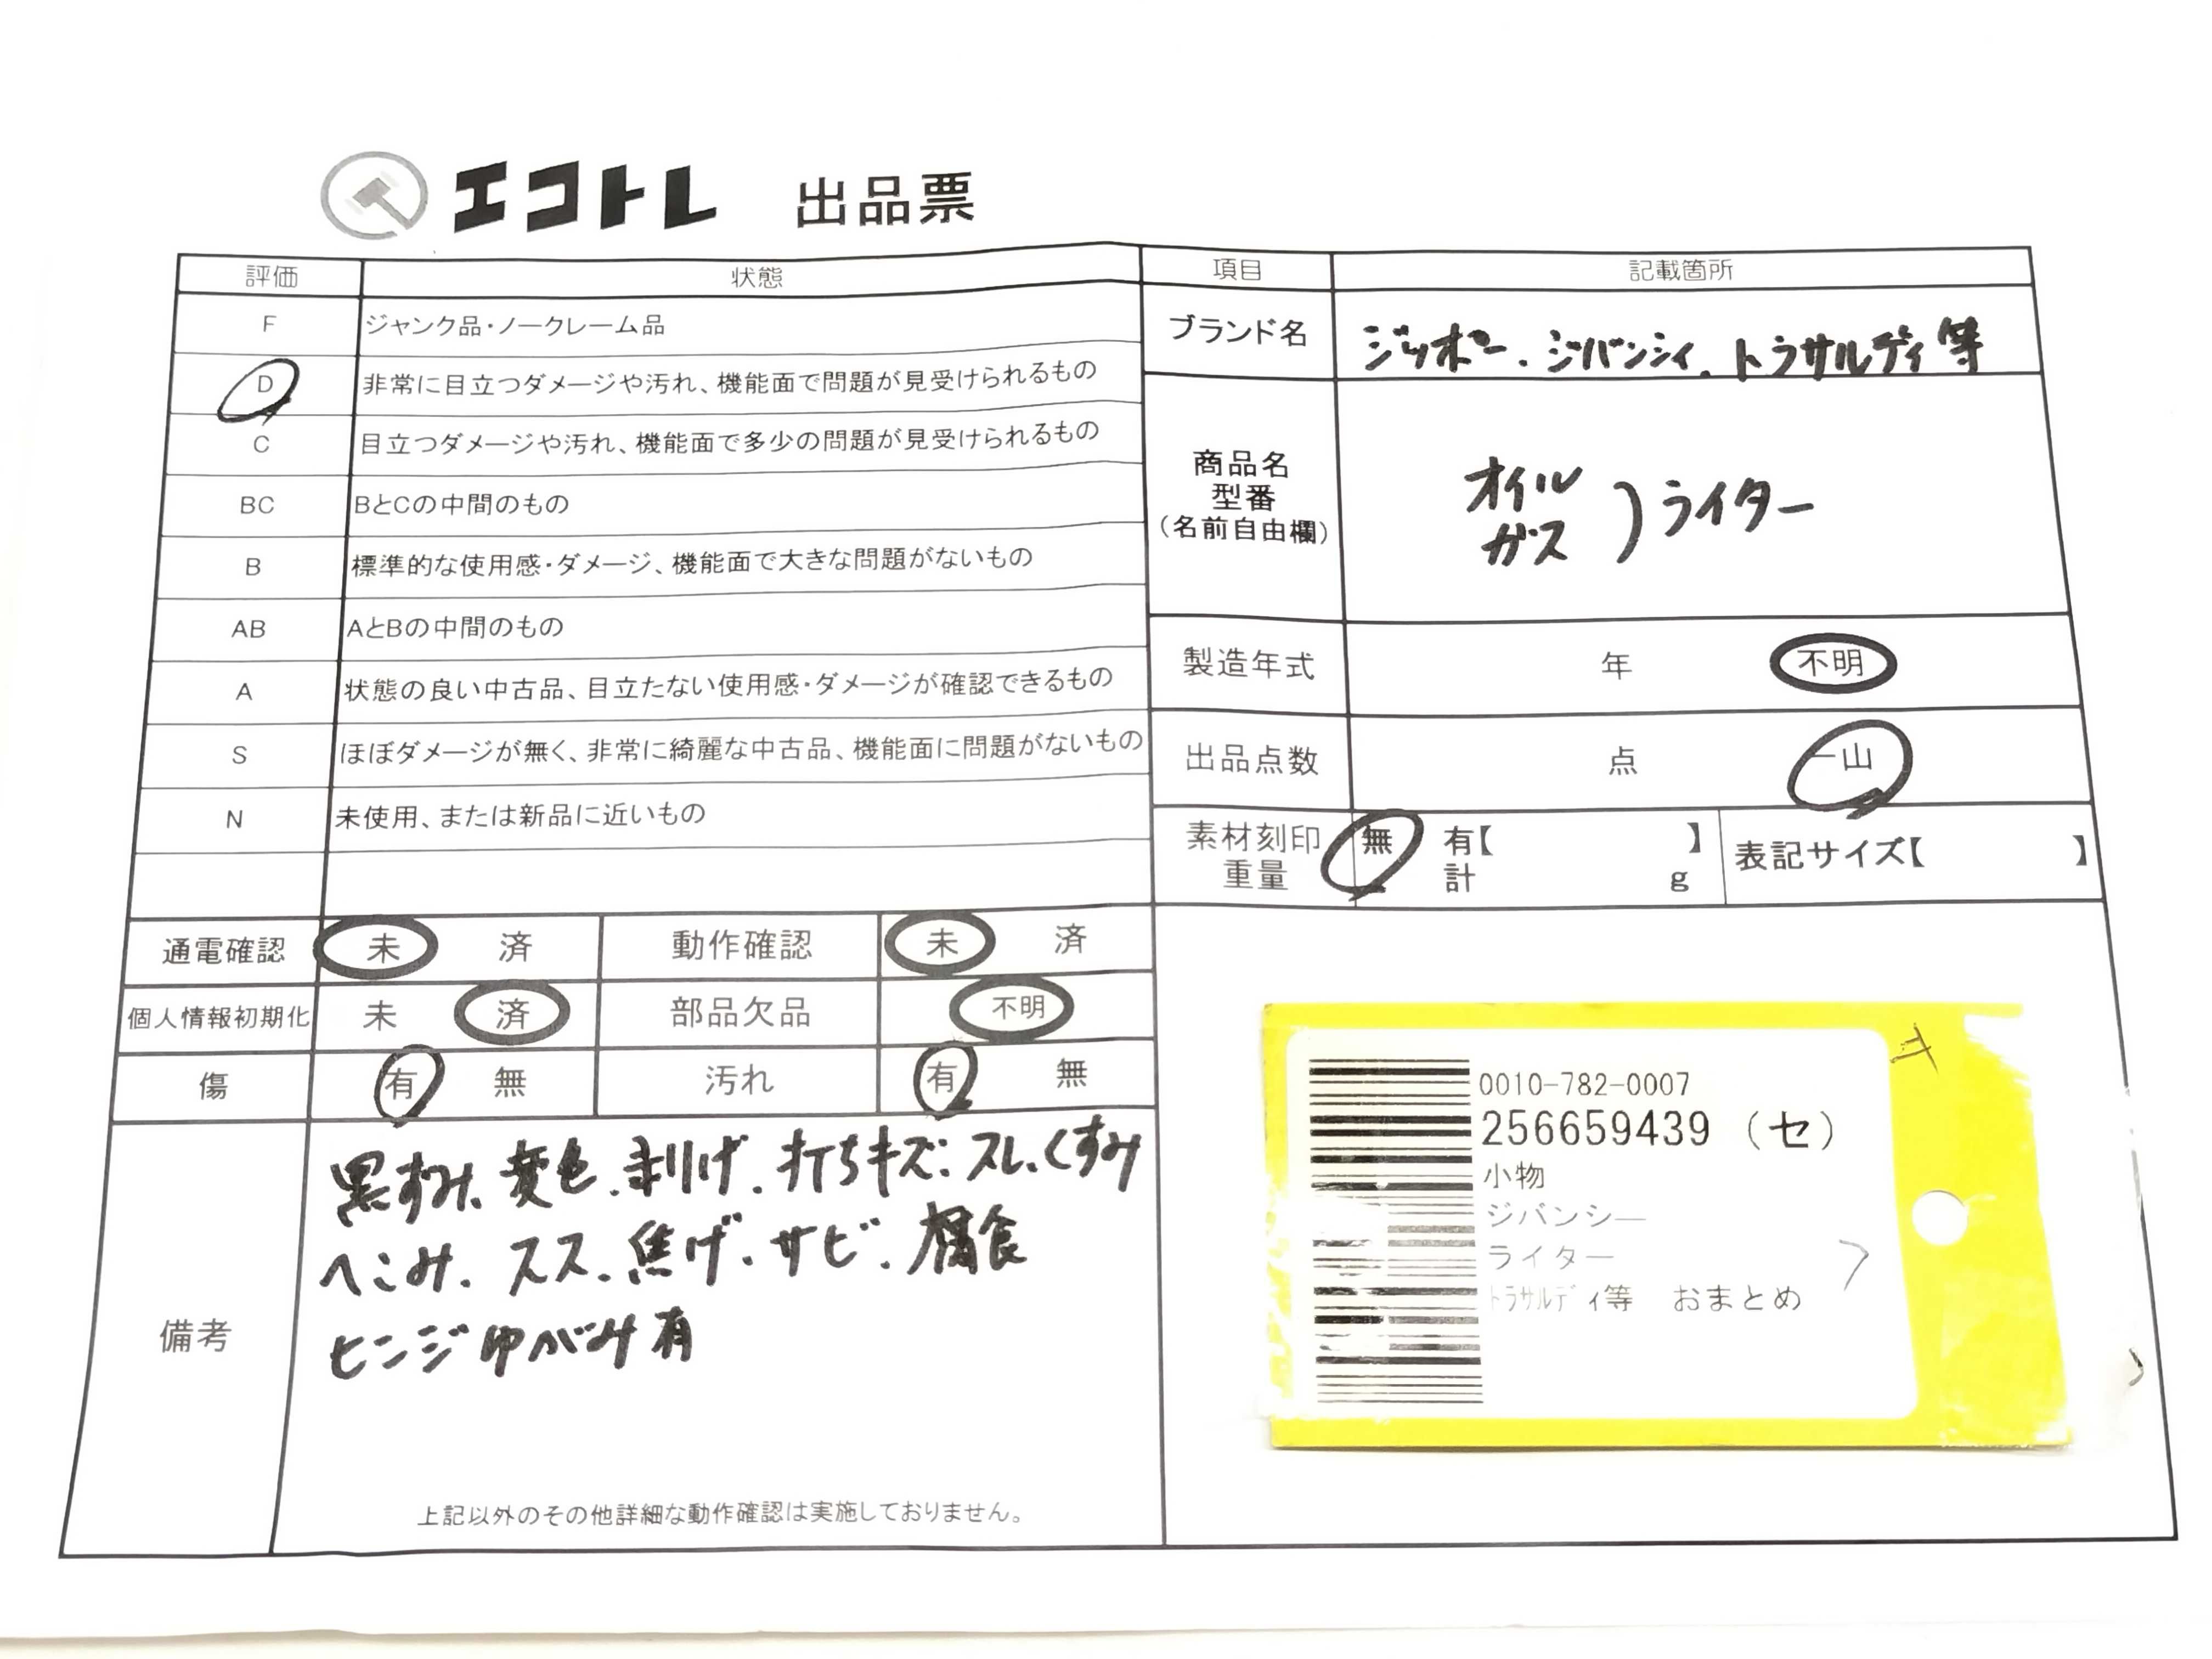 エコトレ 出品票
評価 状態
F ジャンク品・ノークレーム品
D 非常に目立つダメージや汚れ、機能面で問題が見受けられるもの
C 目立つダメージや汚れ、機能面で多少の問題が見受けられるもの
BC BとCの中間のもの
B 標準的な使用感・ダメージ、機能面で大きな問題がないもの
AB AとBの中間のもの
A 状態の良い中古品、目立たない使用感・ダメージが確認できるもの
S ほぼダメージが無く、非常に綺麗な中古品、機能面に問題がないもの
N 未使用、または新品に近いもの
項目 記載箇所
ブランド名 ジッポー、ジバンシィ、トラサルディ等
商品名
型番
(名前自由欄)
オイル
ガス
)ライター
製造年式 年 不明
出品点数 点 一山
素材刻印 無 有【 】 表記サイズ【 】
重量 計 g
通電確認 未 済 動作確認 未 済
個人情報初期化 未 済 部品欠品 不明
傷 有 無 汚れ 有 無
備考
黒ずみ、変色、剥げ、打ちキズ、スレ、くすみ
へこみ、スス、焦げ、サビ、腐食
ヒンジゆがみ有
上記以外のその他詳細な動作確認は実施しておりません。
0010-782-0007
256659439 (セ)
小物
ジバンシー
ライター
トラサルディ等 おまとめ